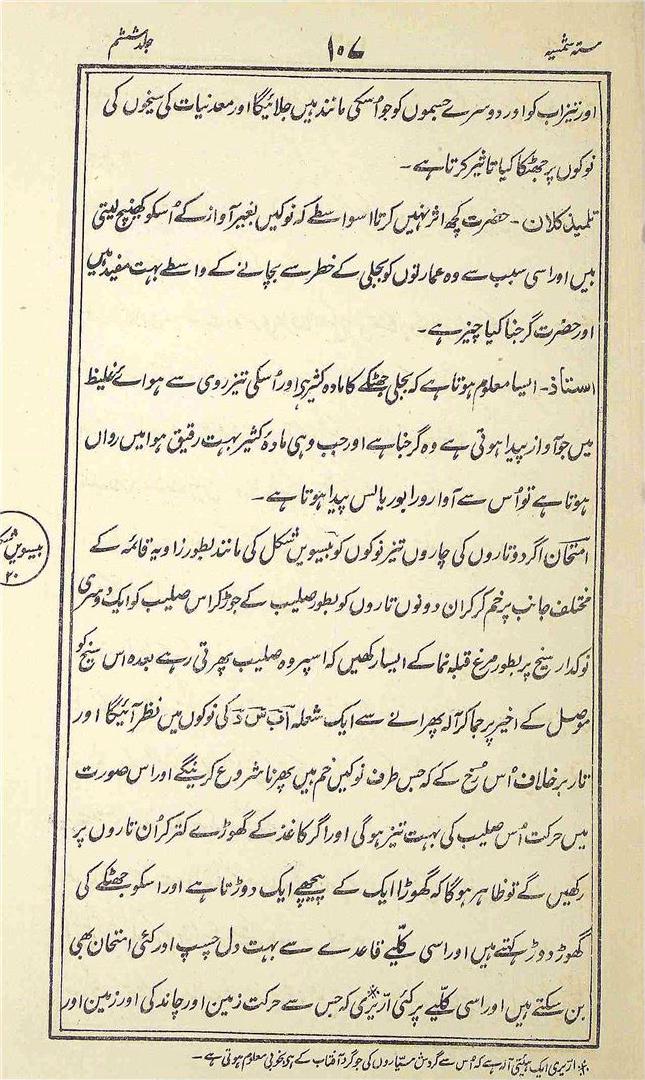 ستہ شمسیہ ۱۰۷ جلد ششم
اور تیزاب کو اور دوسرے جسموں کو جو اُسکی مانند ہیں جلائیگا اور معدنیات کی سیخوں کی
نوکوں پر جھٹکا کیا تاثیر کرتا ہے ۔
تلمیذ کلان ۔ حضرت کچھ اثر نہیں کرتا اسواسطے کہ نوکیں بغیر آواز کے اُسکو کھینچ لیتی
ہیں اور اسی سبب سے وہ عمارتوں کو بجلی کے خطر سے بچانے کے واسطے بہت مفید ہیں
اور حضرت گرجنا کیا چیز ہے ۔
استاذ ۔ ایسا معلوم ہوتا ہے کہ بجلی جھٹکے کا مادہ کثیر ہی اور اُسکی تیزروی سے ہوائے غلیظ
میں جو آواز پیدا ہوتی ہے وہ گرجنا ہے اور جب وہی مادۂ کثیر بہت رقیق ہوا میں رواں
ہوتا ہے تو اُس سے آوارورا بوریالس پیدا ہوتا ہے ۔
امتحان اگر دو تاروں کی چاروں تیز نوکوں کو بیسویں شکل کی مانند بطور زاویہ قائمہ کے
مختلف جانب پر خم کر کر ان دونوں تاروں کو بطور صلیب کے جوڑ کر اس صلیب کو ایک دوسری
نوکدار سیخ پر بطور مرغ قبلہ نما کے ایسا رکھیں کہ اسپر وہ صلیب پھرتی رہے بعدہ اس سیخ کو
موصل کے اخیر پر جما کر آلہ پھرانے سے ایک شعلہ آ ب س د کی نوکوں میں نظر آئیگا اور
تار برخلاف اُس رُخ کے کہ جس طرف نوکیں خم ہیں پھرنا شروع کرینگے اور اس صورت
میں حرکت اُس صلیب کی بہت تیز ہوگی اور اگر کاغذ کے گھوڑے کتر کر اُن تاروں پر
رکھیں گے تو ظاہر ہوگا کہ گھوڑا ایک کے پیچھے ایک دوڑتا ہے اور اسکو جھٹکے کی
گھوڑ دوڑ کہتے ہیں اور اسی کلّیے قاعدے سے بہت دل چسپ اور کئی امتحان بھی
بن سکتے ہیں اور اسی کلّیے پر کئی ارّیری* کہ جس سے حرکت زمین اور چاند کی اور زمین اور
بیسویں
۲۰
* ارّیری ایک ہیئتی آلہ ہے کہ اُس سے گردش سیّاروں کی جو گرد آفتاب کے ہی بخوبی معلوم ہوتی ہے ۔